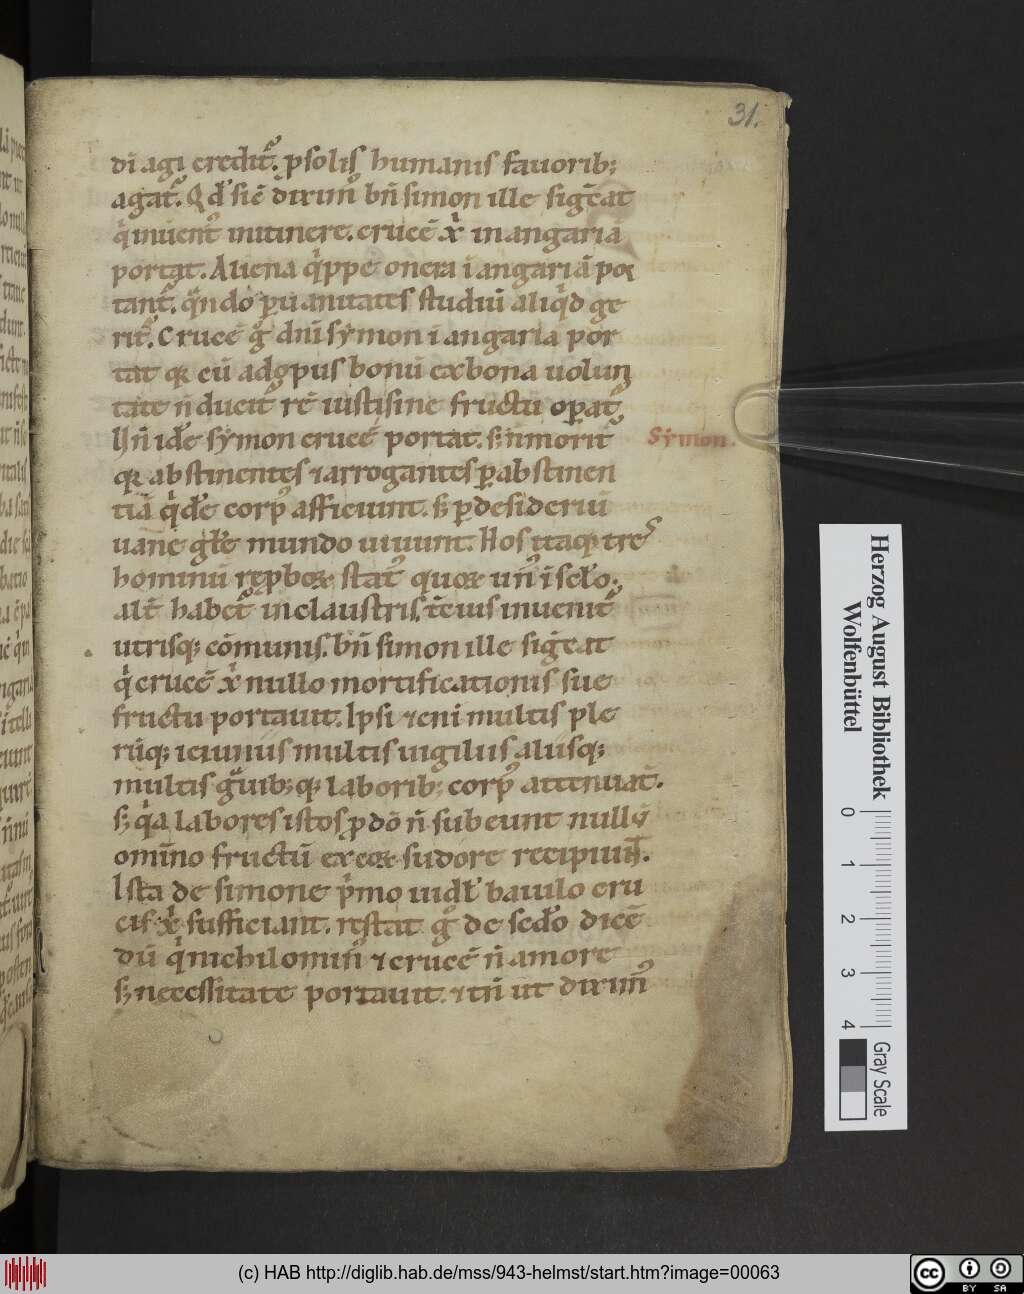 31.
di agi credit᷒. ꝓ solis humanis fauorib;
agat᷒. Qd̕ siē dixim᷒ bn̄ simon ille sigēat
qͥ inuent᷒ initinere. crucē xͥ in angaria
portat. Aliena qͥppe onera ī angariā por
tant᷒. qn̄do ꝑ uanitates studiū aliqͥd ge
rit᷒. Crucē gͦ dn̄i sẏmon ī angaria por
tat qꝛ cū ad opus bonū ex bona uolun
tate n̄ ducit᷒ rē iusti sine fructu oꝑat᷒.
Hn̄ idē sẏmon crucē portat. s; n̄ morit᷒
Sẏmon.
qꝛ abstinentes ⁊ arrogantes ꝑ abstinen
tiā qͥdē corp᷒ afficiunt. s; ꝑ desideriū
uane gl̄e mundo uiuunt. Hos itaq; tres
hominū reꝓboꝝ stat᷒ quoꝝ un᷒ ī scl̄o.
alt̄ habet᷒ in claustris. t̄cius inuenit᷒
utrisq; cōmunis. bn̄ simon ille sigēat
qͥ crucē xͥ nullo mortificationis sue
fructu portauit. Ipsi ⁊enī multis ple
rūq; ieiuniis multis uigiliis aliisq;
multis gͣuib; q; laborib; corp᷒ attenuāt.
s; qͥa labores istos ꝓ dō n̄ subeunt nullū
omīno fructū ex eoꝝ sudore recipiunt.
Ista de simone pͥmo uidl̄ baiulo cru
cis xͥ sufficiant. restat gͦ de scd̄o dicē
dū qͥ nichilomin᷒ ⁊ crucē n̄ amore
s; necessitate portauit. ⁊ tn̄ ut dixim᷒
Herzog August Bibliothek
Wolfenbüttel
0 1 2 3 4
Gray Scale
(c) HAB http://diglib.hab.de/mss/943-helmst/start.htm?image=00063
cc BY SA